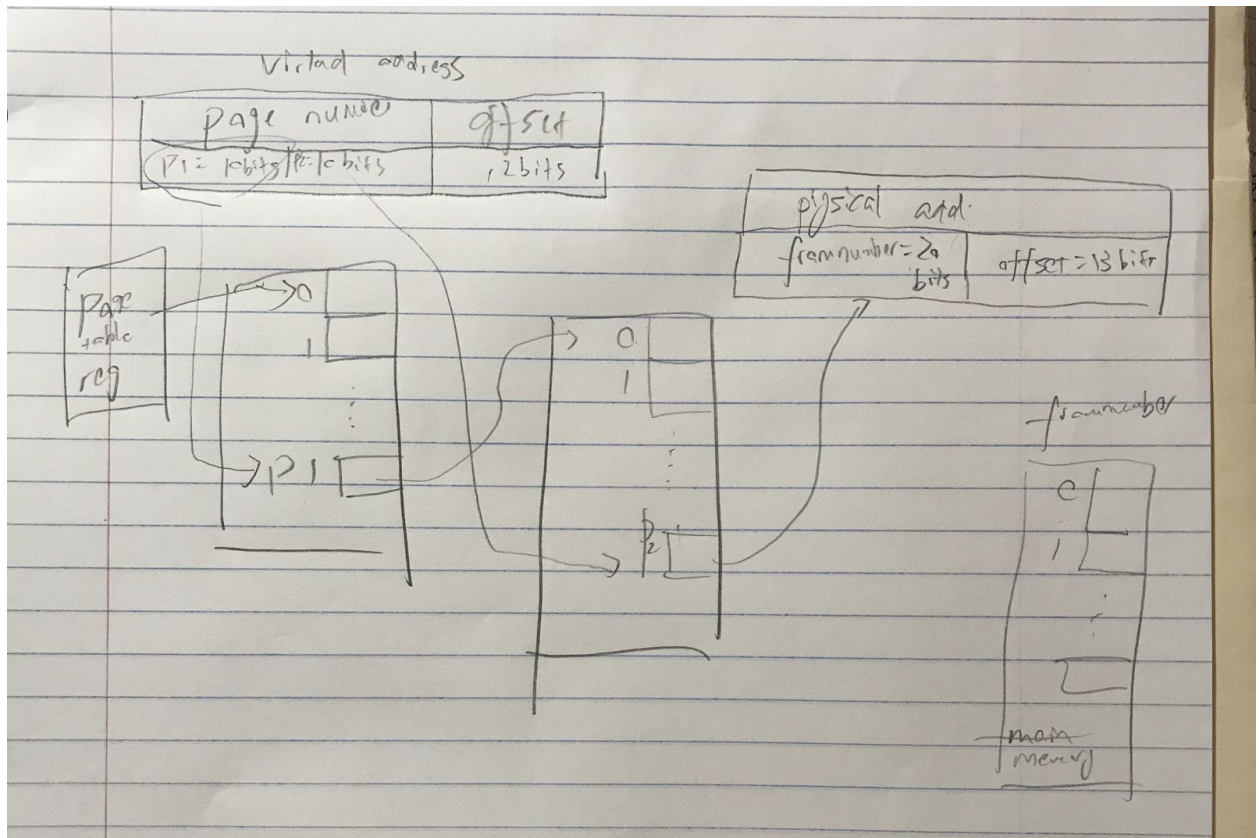 Virtad address
page number
offset
P1 = 10bits | P2=10 bits
12bits
physical add.
framnumber=20
bits
offset=13 bits
page
table
reg
0
1
P1
0
1
P2
framnumber
0
1
main
memory